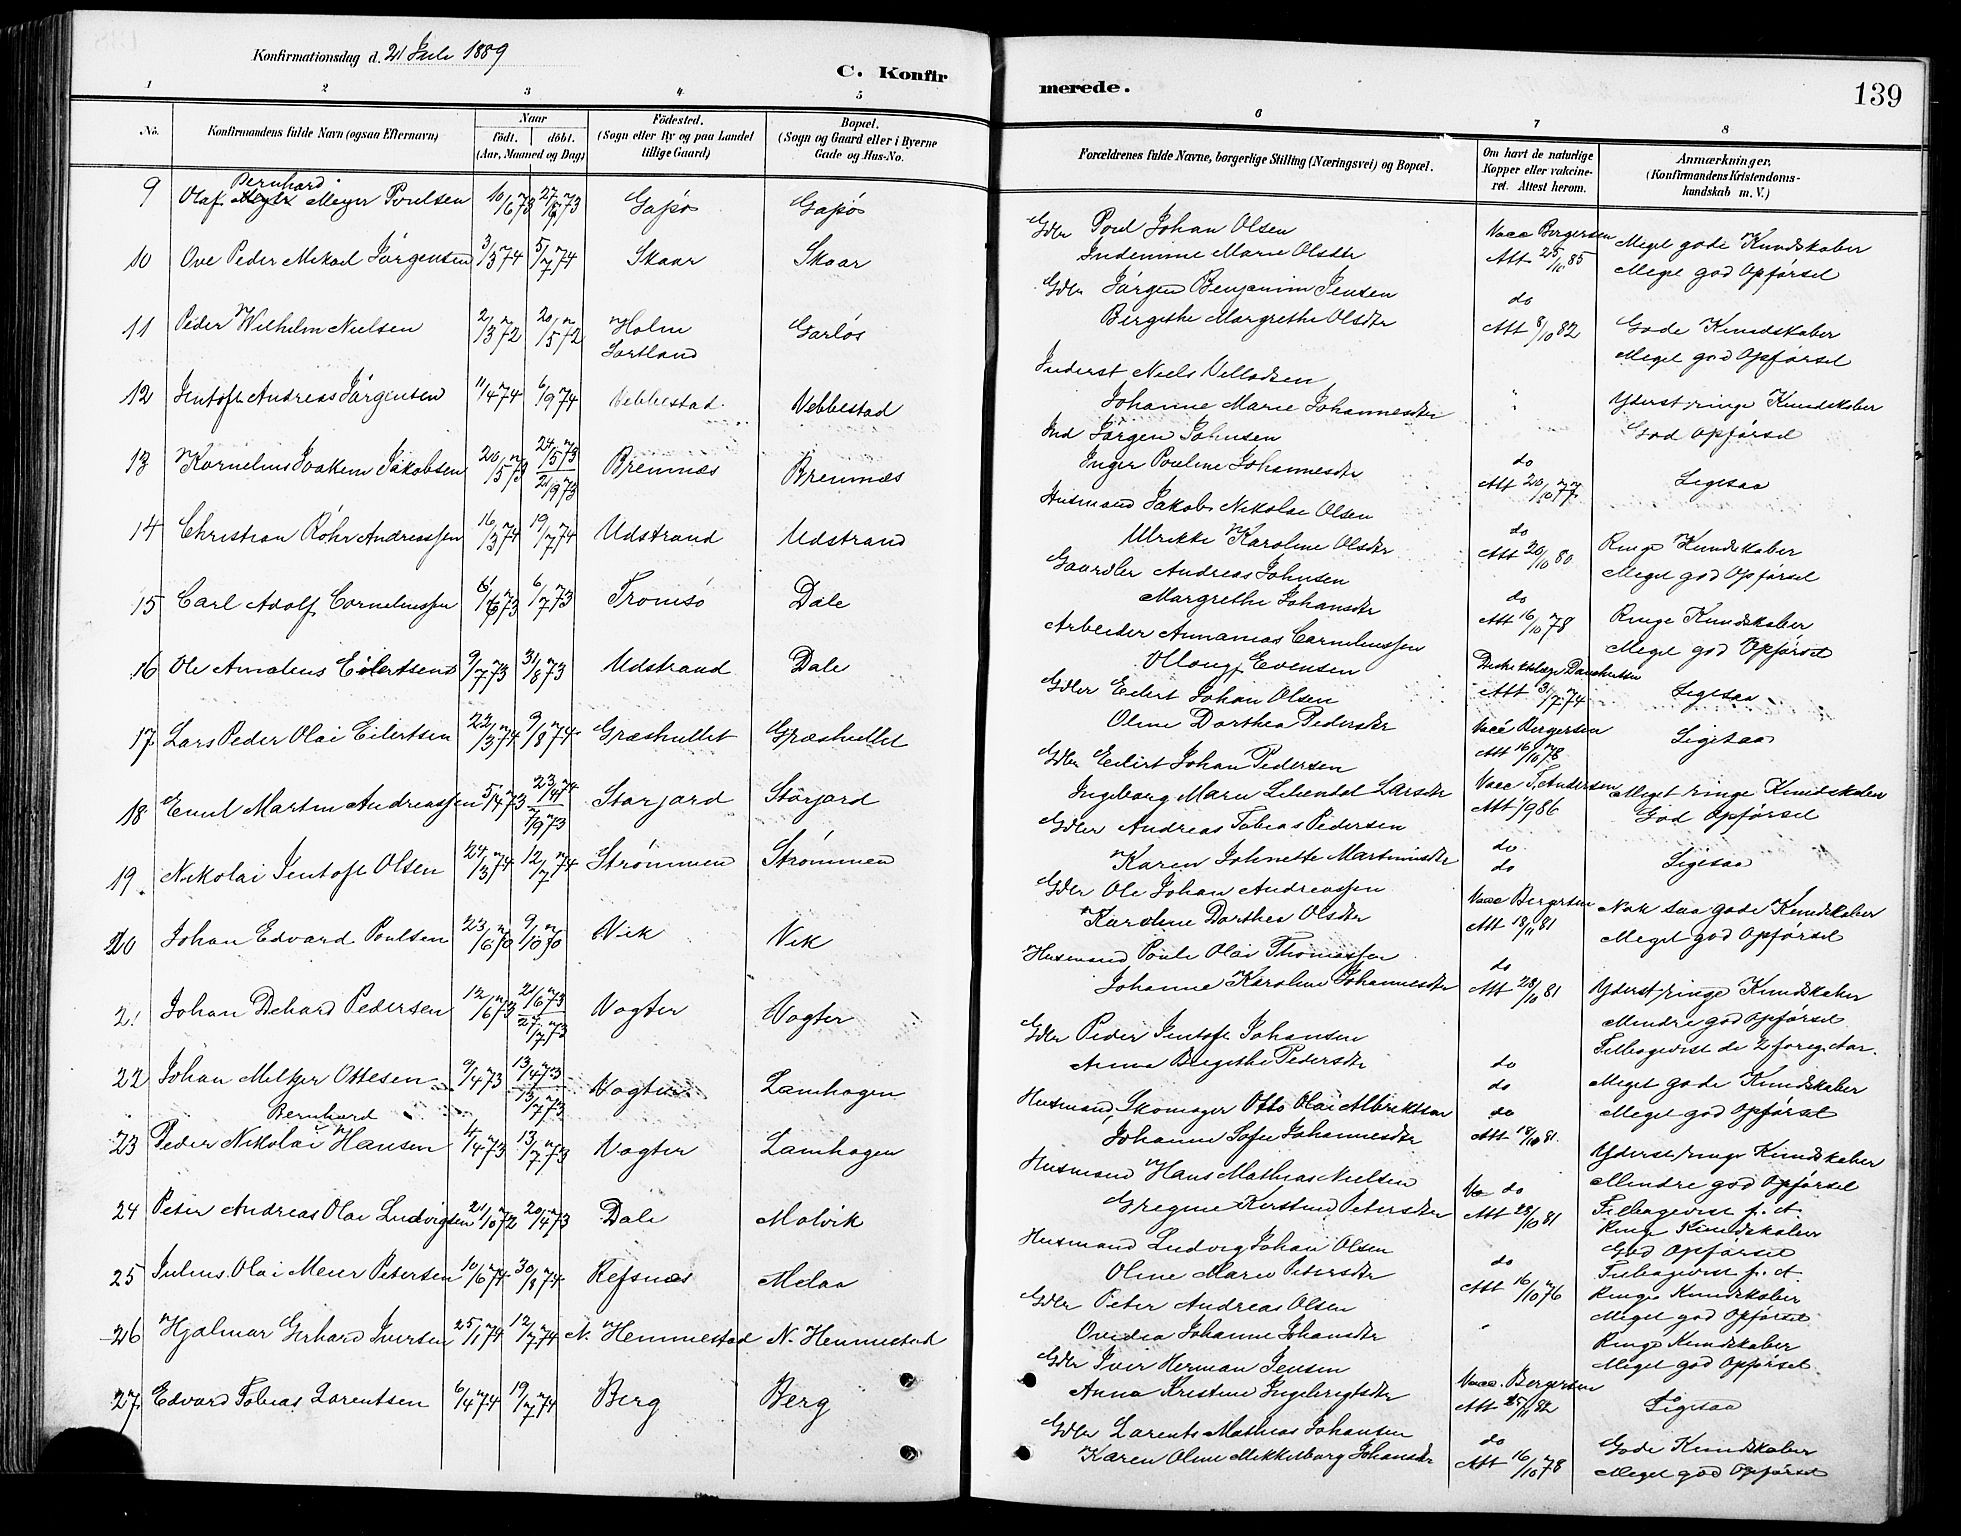 Konfirmationsdag d. 21 Juli 1889
C. Konfirmerede.
139
1 2 3 4 5 6 7 8
No.
Konfirmandens fulde Navn (ogsaa Efternavn)
Naar
født. døbt.
(Aar, Maaned og Dag)
Fødested.
(Sogn eller By og paa Landet tillige Gaard)
Bopæl.
(Sogn og Gaard eller i Byerne Gade og Hus-No.
Forældrenes fulde Navne, borgerlige Stilling (Næringsvei) og Bopæl.
Om havt de naturlige Kopper eller vakcineret. Attest herom.
Anmærkninger,
(Konfirmandens Kristendomskundskab m. V.)
Bernhard
9 Olaf Meyer Poulsen 10/6 73 Gapø Gapø
Gdbr Poul Johan Olsen Vacc Bergersen Meget gode Kundskaber
Indemine Marie Olsdtr Att 25/10 85 Meget god Opførsel
10 Ove Peder Mikael Jørgensen 3/3 74 5/7 74 Skaar Skaar
Gdbr Jørgen Benjamin Jensen do
Bergithe Margrethe Olsdtr Att 8/10 82 Gode Kundskaber
Meget god Opførsel
11 Peder Wilhelm Nielsen 2/3 72 20/5 72 Holm Sortland Garløs
Inderst Niels Villadsen " Yderst ringe Kundskaber
Johanne Marie Johannesdtr God Opførsel
12 Jentoft Andreas Jørgensen 11/4 74 6/9 74 Vebbestad Vebbestad
Ind Jørgen Johnsen do
Inger Pouline Johannesdtr Att 20/10 77 Ligesaa
13 Kornelius Joakem Jakobsen 20/5 73 24/5 73 21/9 73 Bremnæs Bremnæs
Husmand Jakob Nikolai Olsen do Ringe Kundskaber
Ulrikke Karoline Olsdtr Att 20/10 80 Meget god Opførsel
14 Christian Röhr Andreassen 16/3 74 19/7 74 Udstrand Udstrand
Gaardbr Andreas Johnsen do Ringe Kundskaber
Margrethe Johansdtr Att 16/10 78 Meget god Opførsel
15 Carl Adolf Corneliussen 6/7 73 Tromsø Dale
Arbeider Annanias Corneliussen
Evensen Att 31/7 74 Ligesaa
16 Ole Amalius Eilertsen 9/7 73 31/8 73 Udstrand Dale
Gdbr Eilert Johan Olsen Vacc Bergersen Ligesaa
Oline Dorthea Pedersdtr Att 16/10 78
17 Lars Peder Olai Eilertsen 22/3 74 9/8 74 Græshullet Græshullet
Gdbr Eilert Johan Pedersen Vacc T. Andersen Meget ringe Kundskaber
Ingeborg Marie Larsdtr God Opførsel
18 Emil Martin Andreassen 5/4 73 7/9 73 Storjord Storjord
Gdbr Andreas Tobias Pedersen do
Karen Johnette Martinusdtr do Ligesaa
19 Nikolai Jentoft Olsen 24/3 74 12/7 74 Strømmen Strømmen
Gdbr Ole Johan Andreassen Vacc Bergersen Nok saa gode Kundskaber
Karoline Dorthea Olsdtr Att 18/11 81 Meget god Opførsel
20 Johan Edvard Poulsen 23/6 70 9/10 70 Vik Vik
Husmand Poul Olai Thomassen do
Johanne Karoline Johannesdtr Att 28/10 81 Yderst ringe Kundskaber
Mindre god Opførsel
Tilbagevist de 2 foreg. Aar.
21 Johan Dehard Pedersen 12/6 73 21/6 73 27/7 73 Vogter Vogter
Gdbr Peder Jentoft Johansen do Meget gode Kundskaber
Anna Birgithe Pedersdtr do Meget god Opførsel
22 Johan Meltzer Ottesen 9/4 73 13/4 73 13/7 73 Vogter Lamhagen
Husmand, Skomager Otto Olai Albriktsen do
Johanne Sofie Johannesdtr Att 18/10 81 Yderst ringe Kundskaber
Mindre god Opførsel
Tilbagevist f. A.
Bernhard
23 Peder Nikolai Hansen 4/4 73 13/7 73 Vogter Lamhagen
Husmand Hans Mathias Nielsen do Ringe Kundskaber
Petersdtr Att 28/10 81 God Opførsel
Tilbagevist f. A.
24 Peter Andreas Olai Ludvigsen 21/10 72 20/4 73 Dale Molvik
Husmand Ludvig Johan Olsen do Ringe Kundskaber
Oline Marie Petersdtr Att 16/10 76 Meget god Opførsel
25 Julius Olai Meier Petersen 10/6 74 30/8 74 Refsnæs Melaa
Gdbr Peter Andreas Olsen " Ringe Kundskaber
Ovidia Johanne Johansdtr Meget god Opførsel
26 Hjalmar Gerhard Iversen 25/1 74 12/7 74 N. Hemmestad N. Hemmestad
Gdbr Iver Herman Jensen Vacc. Bergersen
Anna Kristine Ingebrigtsdtr Att 25/11 82 Ligesaa
27 Edvard Tobias Lorentsen 6/4 74 19/7 74 Berg Berg
Gdbr Lorents Mathias Johansen do Gode Kundskaber
Karen Oline Mikkelborg Johansdtr Att 16/10 78 Meget god Opførsel